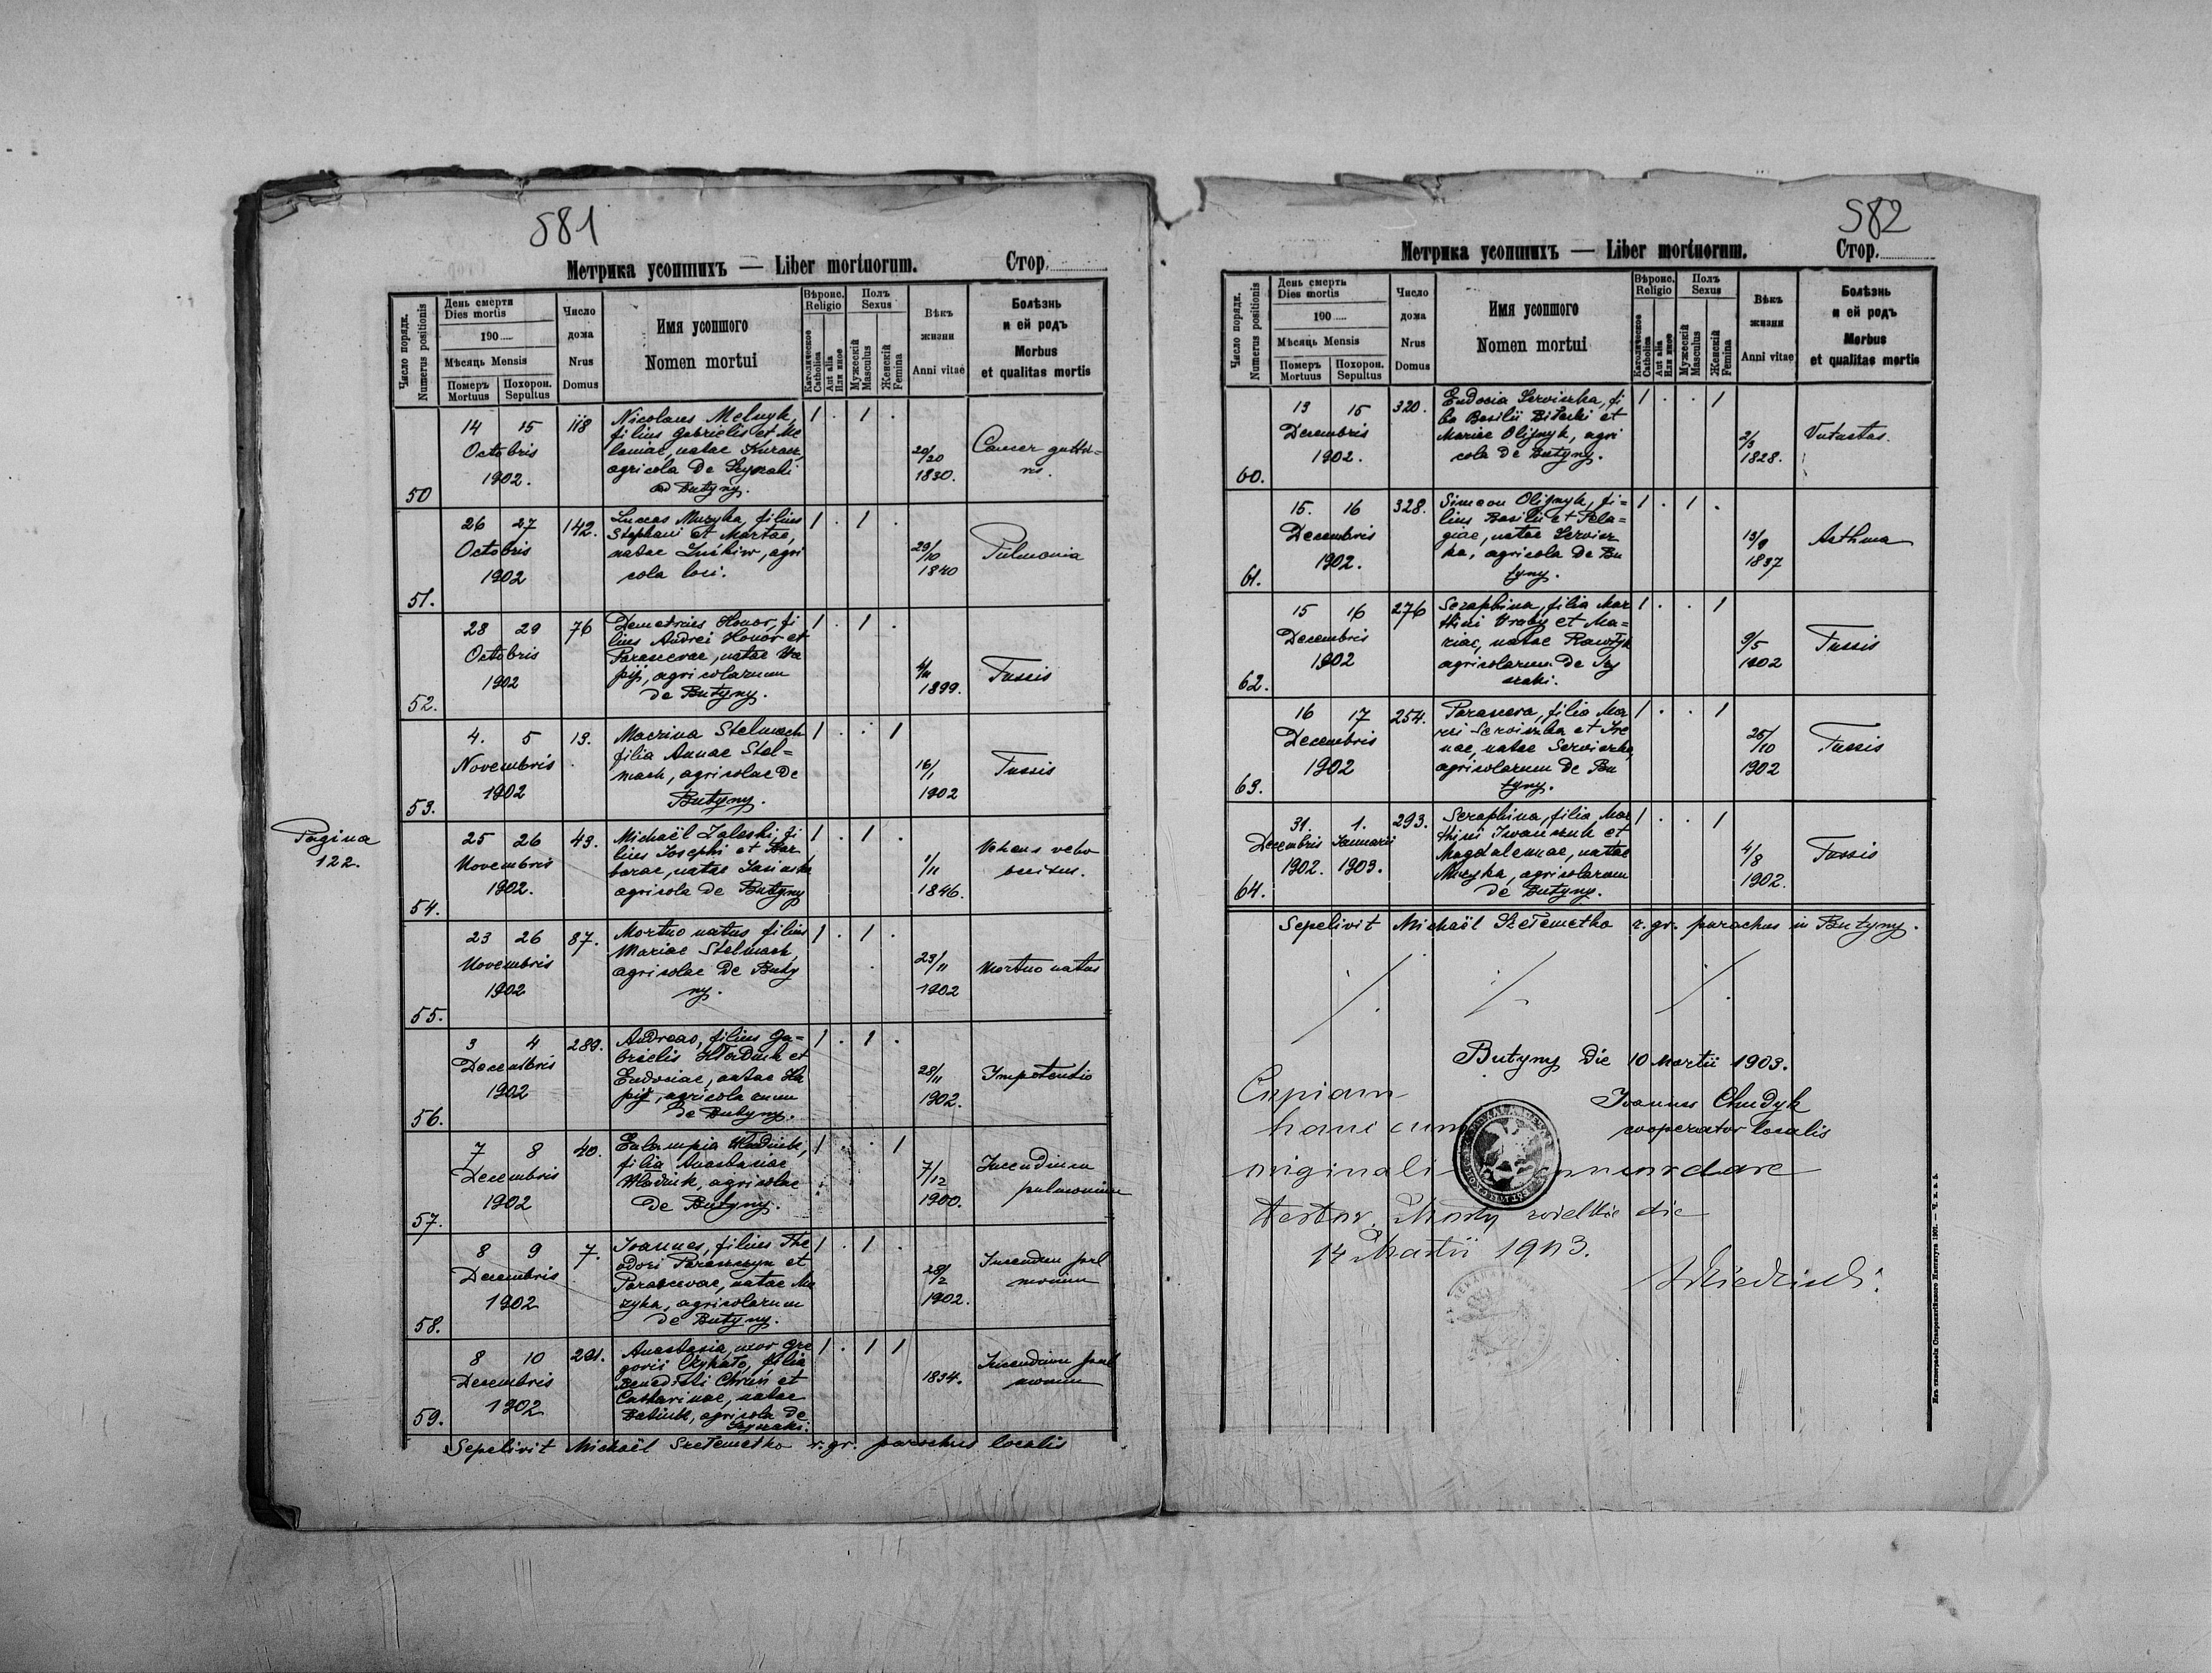 581
Метрика усопшихъ — Liber mortuorum.
Стор.
Число порядк.
Numerus positionis
День смерти
Dies mortis
190
Мѣсяць Mensis
Померъ
Mortuus
Похорон.
Sepultus
Число
дома
Nrus
Domus
Имя усопшого
Nomen mortui
Вѣроис.
Religio
Католическое
Catholica
Aut alia
Или иное
Полъ
Sexus
Мужескій
Masculus
Женскій
Femina
Вѣкъ
жизни
Anni vitae
Болѣзнь
и ей родъ
Morbus
et qualitas mortis
50
14 15
Octobris
1902.
118
Nicolaus Melnyk,
filius Gabrielis et Me
laniae, natae
agricola de
ad Butyny.
1 . 1 .
29/20
1830.
Cancer guttu=
ris.
51.
26 27
Octobris
1902
142.
Luccas Muzyka, filius
Stephani et Martae,
natae , agri
cola loci.
1 . 1 .
29/10
1840
Pulmonia
52.
28 29
Octobris
1902
76
Demetrius Honor, fi
lius Andrei Honor et
Parascevae, natae Ha
pij, agricolarum
de Butyny.
1 . 1 .
1899.
Tussis
53.
4. 5
Novembris
1902
13.
Macrina Stelmach
filia Annae Stel=
mach, agricolae de
Butyny.
1 . . 1
16/1
1902
Tussis
Pagina
122.
54.
25 26
Novembris
1902.
43.
Michaël Zaleski, fi
lius Josephi et Bar
barae, natae
agricola de Butyny
1 . 1 .
1/11
1846.
Vehens
55.
23 26
Novembris
1902
87.
Mortuo natus filius
Mariae Stelmach,
agricolae de Buty
ny.
1 . 1 .
23/11
1902
Mortuo natus
56.
3 4
Decembris
1902
289.
Andreas, filius Ga=
brielis Hładiuk et
Eudociae, natae Ha
pij, agricolarum
de Butyny.
1 . 1 .
28/11
1902.
Impotentio
57.
7 8
Decembris
1902
40.
Eulampia
filia Anastasiae
agricolae
de Butyny.
1 . . 1
7/12
1900.
Incendium
pulmonium
58.
8 9
Decembris
1902
7.
Joannes, filius The
odori et
Parascevae, natae Mu
zyka, agricolarum
de Butyny.
1 . 1 .
28/2
1902.
Incendium pul
monium
59.
8 10
Decembris
1902
291.
Anastasia, uxor Gre
gorii , filia
Benedicti et
Catharinae, natae
agricola de
1 . 1 1
1834.
Incendium pul
monum
Sepelivit Michaël Szełemetko r. gr. parochus localis
582
Метрика усопшихъ — Liber mortuorum.
Стор.
Число порядк.
Numerus positionis
День смерть
Dies mortis
190
Мѣсяць Mensis
Померъ
Mortuus
Похорон.
Sepultus
Число
дома
Nrus
Domus
Имя усопшого
Nomen mortui
Вѣроис.
Religio
Католическое
Catholica
Aut alia
Или иное
Полъ
Sexus
Мужескій
Masculus
Женскій
Femina
Вѣкъ
жизни
Anni vitae
Болѣзнь
и ей родъ
Morbus
et qualitas mortis
60.
13 15
Decembris
1902.
320.
Eudocia Serwiszka, fi
lia Basilii et
Mariae Olijnyk, agri
cola de Butyny.
1 . . 1
2/3
1828.
61.
15. 16
Decembris
1902.
328.
Simeon Olijnyk, fi=
lius Basilii et Pela=
giae, natae Serwisz
ka, agricola de Bu
tyny.
1 . 1 .
13/9
1837
Asthma
62.
15 16
Decembris
1902
276
Seraphina, filia Mar
thini Hrabij et Ma=
riae, natae
agricolarum de
1 . . 1
9/5
1902
Tussis
63.
16 17
Decembris
1902
254.
Parasceva, filia Ma
rci Serwiszka et Ire
nae, natae Serwiszka,
agricolarum de Bu
tyny.
1 . . 1
25/10
1902
Tussis
64.
31. 1.
Decembris Januarii
1902. 1903.
293.
Seraphina, filia Mar
thini Iwanczuk et
Magdalenae, natae
Muzyka, agricolarum
de Butyny.
1 . . 1
4/8
1902.
Tussis
Sepelivit Michaël Szełemetko r. gr. parochus in Butyny.
Butyny die 10 Martii 1903.
Joannes Chudyk
cooperator localis
Copiam
hanc cum
originali concordare
testor. Mosty wielkie die
14 Martii 1903.
Изъ типографіи Ставропигійского Института 1901.